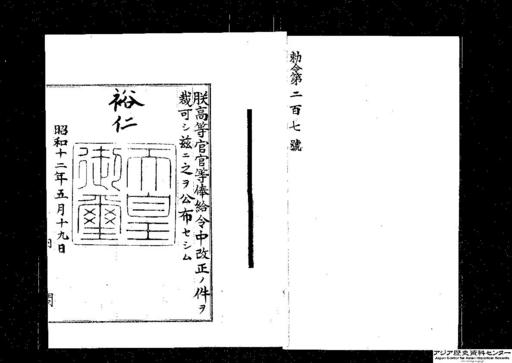 勅令第二百七號
朕高等官官等俸給令中改正ノ件ヲ
裁可シ茲ニ之ヲ公布セシム
裕仁
天皇
御璽
昭和十二年五月十九日
内
閣
アジア歴史資料センター
Japan Center for Asian Historical Records